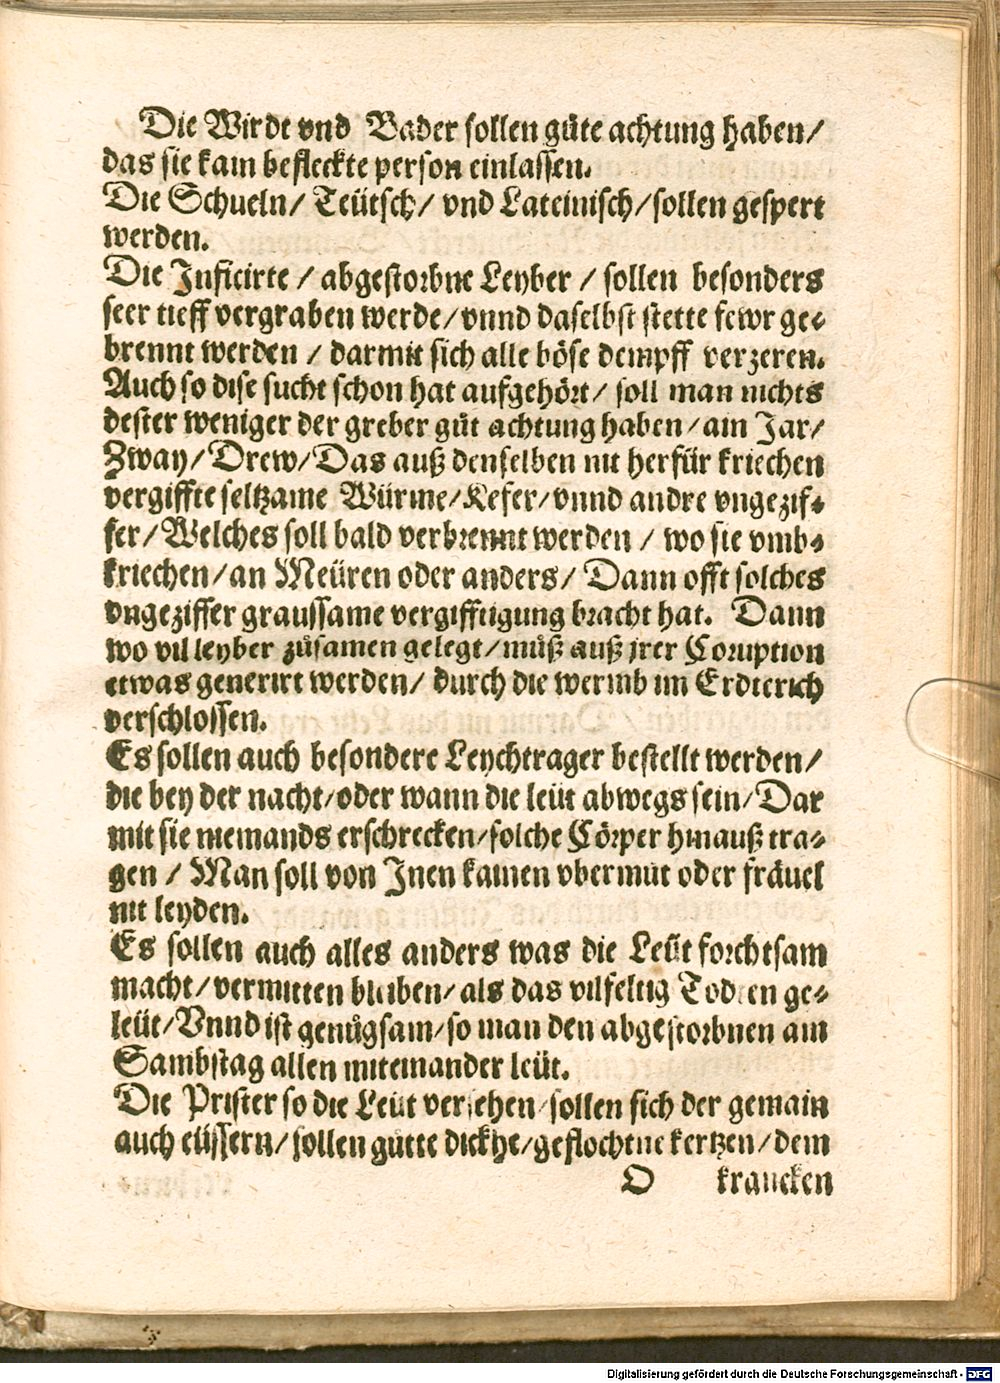 Die Wirdt vnd Bader sollen gůte achtung haben/
das sie kam befleckte person einlassen.
Die Schueln/ Teütsch/ vnd Lateinisch/ sollen gespert
werden.
Die Inficirte / abgestorbne Leyber / sollen besonders
seer tieff vergraben werde/ vnnd daselbst stette fewr ge⸗
brennt werden / darmit sich alle böse dempff verzeren.
Auch so dise sucht schon hat aufgehört/ soll man nichts
dester weniger der greber gůt achtung haben/ am Jar/
Zway/ Drew/ Das auß denselben nit herfür kriechen
vergiffte seltzame Würme/ Kefer/ vnnd andre vngezif⸗
fer/ Welches soll bald verbrennt werden / wo sie vmb⸗
kriechen/ an Meüren oder anders/ Dann offt solches
vngeziffer graussame vergifftigung bracht hat. Dann
wo vil leyber zůsamen gelegt/ můß auß jrer Coruption
etwas generirt werden/ durch die wermb im Erdterich
verschlossen.
Es sollen auch besondere Leychtrager bestellt werden/
die bey der nacht/ oder wann die leüt abwegs sein/ Dar
mit sie niemands erschrecken/ solche Cörper hinauß tra⸗
gen / Man soll von Inen kainen vbermůt oder fräuel
nit leyden.
Es sollen auch alles anders was die Leüt forchtsam
macht/ vermitten bleiben/ als das vilfeltig Todten ge⸗
leüt/ Vnnd ist genůgsam/ so man den abgestorbnen am
Sambstag allen miteinander leüt.
Die Prister so die Leüt versehen/ sollen sich der gemain
auch eüssern/ sollen gůtte dickhe/ geflochtne kertzen/ dem
O krancken
Digitalisierung gefördert durch die Deutsche Forschungsgemeinschaft - DFG